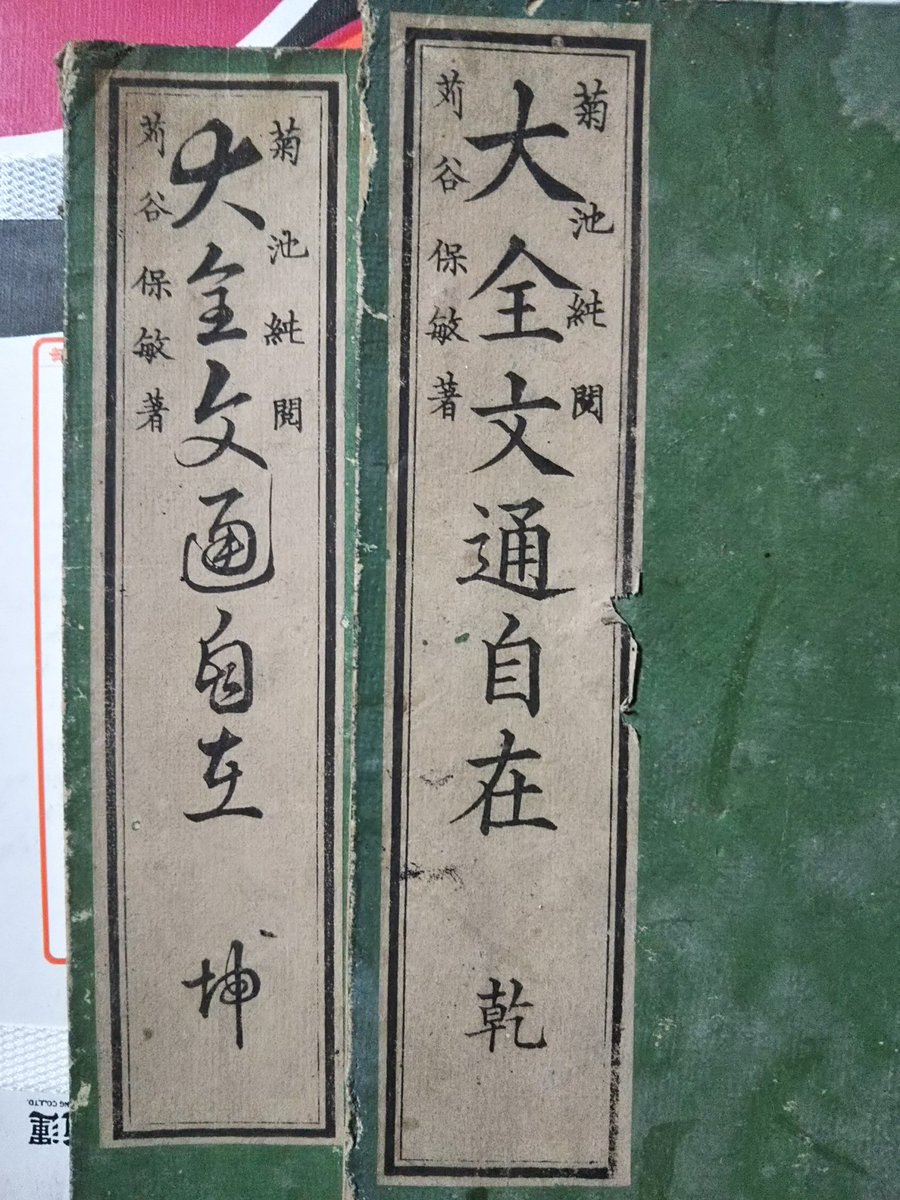 菊池純閲
大全文通自在 乾
苅谷保敏著
菊池純閲
大全文通自在 坤
苅谷保敏著
NG CO.,LTD.
運